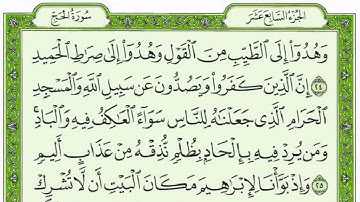 سُورَةُ الحَجِّ
الجُزْءُ السَّابِعَ عَشَرَ
وَهُدُوٓا۟ إِلَى ٱلطَّيِّبِ مِنَ ٱلْقَوْلِ وَهُدُوٓا۟ إِلَىٰ صِرَٰطِ ٱلْحَمِيدِ
٢٤ إِنَّ ٱلَّذِينَ كَفَرُوا۟ وَيَصُدُّونَ عَن سَبِيلِ ٱللَّهِ وَٱلْمَسْجِدِ
ٱلْحَرَامِ ٱلَّذِى جَعَلْنَٰهُ لِلنَّاسِ سَوَآءً ٱلْعَٰكِفُ فِيهِ وَٱلْبَادِ ۚ
وَمَن يُرِدْ فِيهِ بِإِلْحَادٍۭ بِظُلْمٍ نُّذِقْهُ مِنْ عَذَابٍ أَلِيمٍ
٢٥ وَإِذْ بَوَّأْنَا لِإِبْرَٰهِيمَ مَكَانَ ٱلْبَيْتِ أَن لَّا تُشْرِكْ